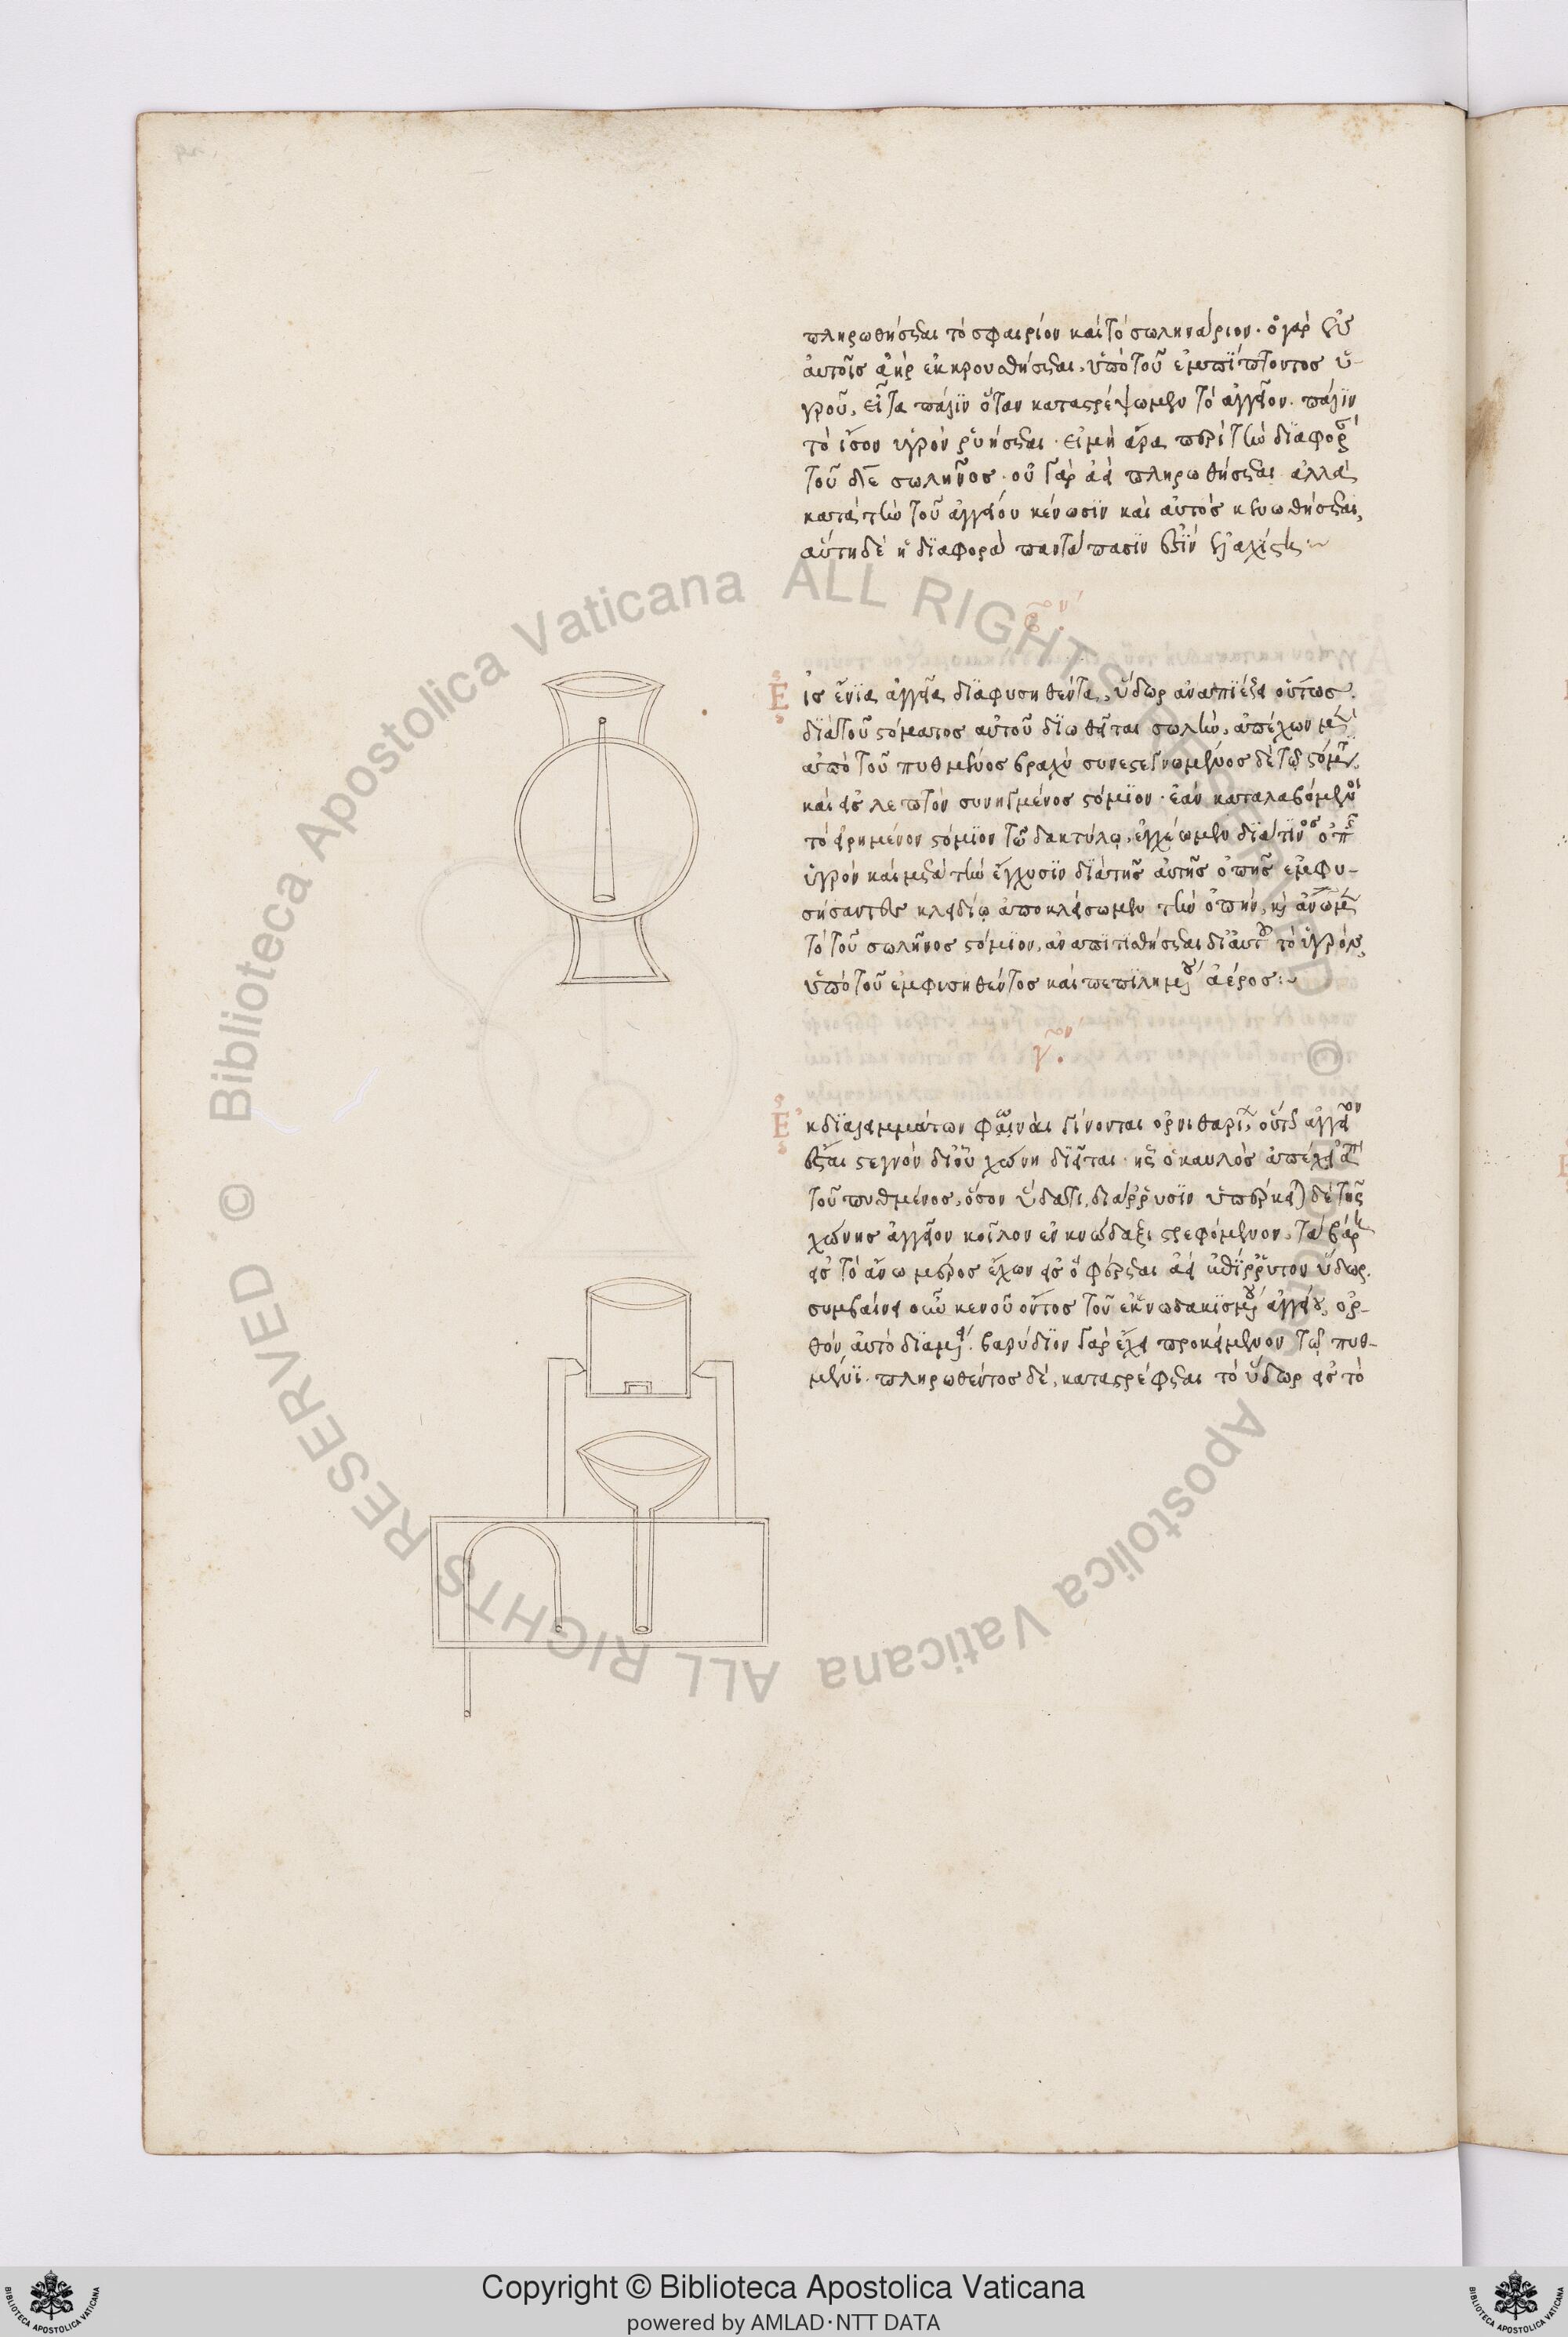 πληρωθήσεται τὸ σφαιρίον καὶ τὸ σωληνάριον· ὁ γὰρ ἐν
αὐτοῖς ἀὴρ ἐκκρουσθήσεται, ὑπὸ τοῦ ἐμπίπτοντος ὑ-
γροῦ, εἶτα πάλιν ὅταν καταστρέψωμεν τὸ ἀγγεῖον· πάλιν
τὸ ἴσον ὑγρὸν ῥυήσεται· εἰ μὴ ἄρα περὶ τὴν διαφορ
τοῦ δε σωλῆνος· οὐ γὰρ ἀεὶ πληρωθήσεται ἀλλὰ
κατὰ τὴν τοῦ ἀγγείου κένωσιν καὶ αὐτὸς κενωθήσεται,
αὕτη δὲ ἡ διαφορὰ παντάπασιν ἐστὶν ἐλαχίστη:~
Εἰς ἔνια ἀγγεῖα διαφυσηθέντα, ὕδωρ ἀναπιέζει οὕτως·
διὰ τοῦ στόματος αὐτοῦ διωθεῖται σωλὴν, ἀπέχων μὲν
ἀπὸ τοῦ πυθμένος βραχὺ συνεστεγνωμένος δὲ τῷ στόμ
καὶ εἰς λεπτὸν συνηγμένος στόμιον· ἐὰν καταλαβόμενοι
τὸ εἰρημένον στόμιον τῷ δακτύλῳ, ἐγχέωμεν διά τινος ὀπ
ὑγρὸν καὶ μετὰ τὴν ἔγχυσιν διὰ τῆς αὐτῆς ὀπῆς ἐμφυ-
σήσαντες κλειδίῳ ἀποκλείσωμεν τὴν ὀπὴν, κ ἀνῶμε
τὸ τοῦ σωλῆνος στόμιον, ἀναπιτιαθήσεται δι' αὐτοῦ τὸ ὑγρὸν,
ὑπὸ τοῦ ἐμφυσηθέντος καὶ πεπιλημένου ἀέρος:~
γον
Εκ διαλαμμάτων φωναὶ γίνονται ὀρνιθαρί οὕτω ἀγγεῖον
ἐστὶ στεγνὸν δι' οὗ χώνη διεῖται· ἧς ὁ καυλὸς ἀπέχει ἀπὸ
τοῦ πυθμένος, ὅσον ὕδατι, διάρρυσιν ὑπέρκει) δὲ τῆς
χώνης ἀγγεῖον κοῖλον ἐν κνώδαξι στρεφόμενον, τὰ βάρη
εἰς τὸ ἄνω μέρος ἔχων εἰς ὃ φέρεται ἀεὶ ἐπίρρυτον ὕδωρ.
συμβαίνει οὖν κενοῦ ὄντος τοῦ ἐκνωδακισμένου ἀγγείου, ὀρ-
θὸν αὐτὸ διαμένει. βαρύδιον γὰρ ἔχει προκείμενον τῷ πυθ-
μένι· πληρωθέντος δὲ, καταστρέφεται τὸ ὕδωρ εἰς τὸ
Biblioteca Apostolica Vaticana ALL RIGHTS RESERVED © Biblioteca Apostolica Vaticana ALL RIGHTS RESERVED ©
Copyright © Biblioteca Apostolica Vaticana
powered by AMLAD·NTT DATA
BIBLIOTECA APOSTOLICA VATICANA
BIBLIOTECA APOSTOLICA VATICANA